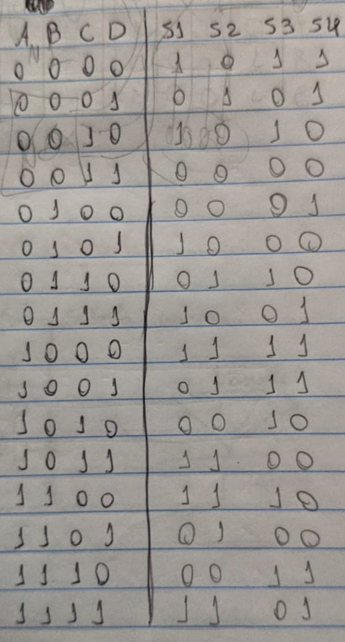 A B C D S1 S2 S3 S4
0 0 0 0 1 0 1 1
0 0 0 1 0 1 0 1
0 0 1 0 1 0 1 0
0 0 1 1 0 0 0 0
0 1 0 0 0 0 0 1
0 1 0 1 1 0 0 0
0 1 1 0 0 1 1 0
0 1 1 1 1 0 0 1
1 0 0 0 1 1 1 1
1 0 0 1 0 1 1 1
1 0 1 0 0 0 1 0
1 0 1 1 1 1 0 0
1 1 0 0 1 1 1 0
1 1 0 1 0 1 0 0
1 1 1 0 0 0 1 1
1 1 1 1 1 1 0 1